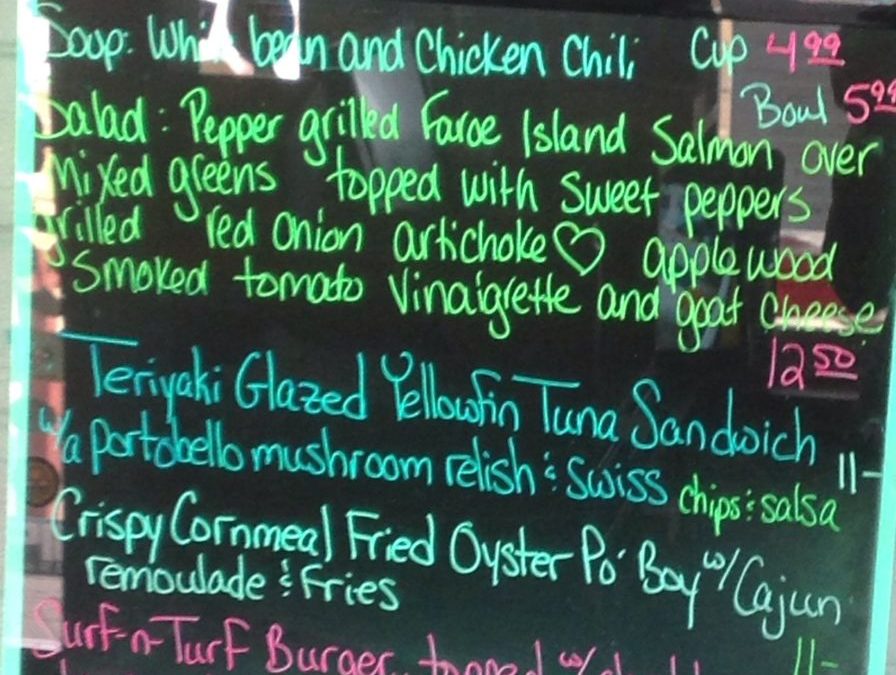 Soup: White bean and Chicken Chili Cup 4.99
Bowl 5.99
Salad: Pepper grilled Faroe Island Salmon over
Mixed greens topped with sweet peppers
grilled red onion artichoke♡ applewood
smoked tomato Vinaigrette and goat cheese
12.50
Teriyaki Glazed Yellowfin Tuna Sandwich
w/a portobello mushroom relish & swiss chips & salsa 11-
Crispy Cornmeal Fried Oyster Po' Boy w/ Cajun
remoulade & fries
11-
Surf-n-Turf Burger topped w/